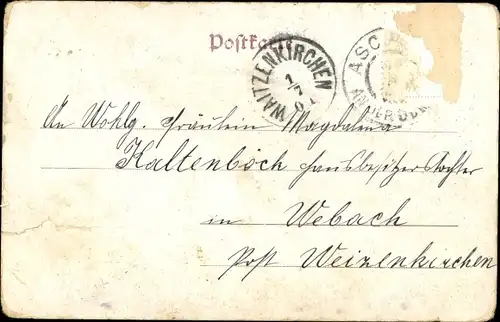 Postkarte
WAITZENKIRCHEN
1/7
ASCH
An Wohlg. Fräulein Magdalena
Kaltenböch Hausbesitzer Tochter
in Webach
Post Weizenkirchen